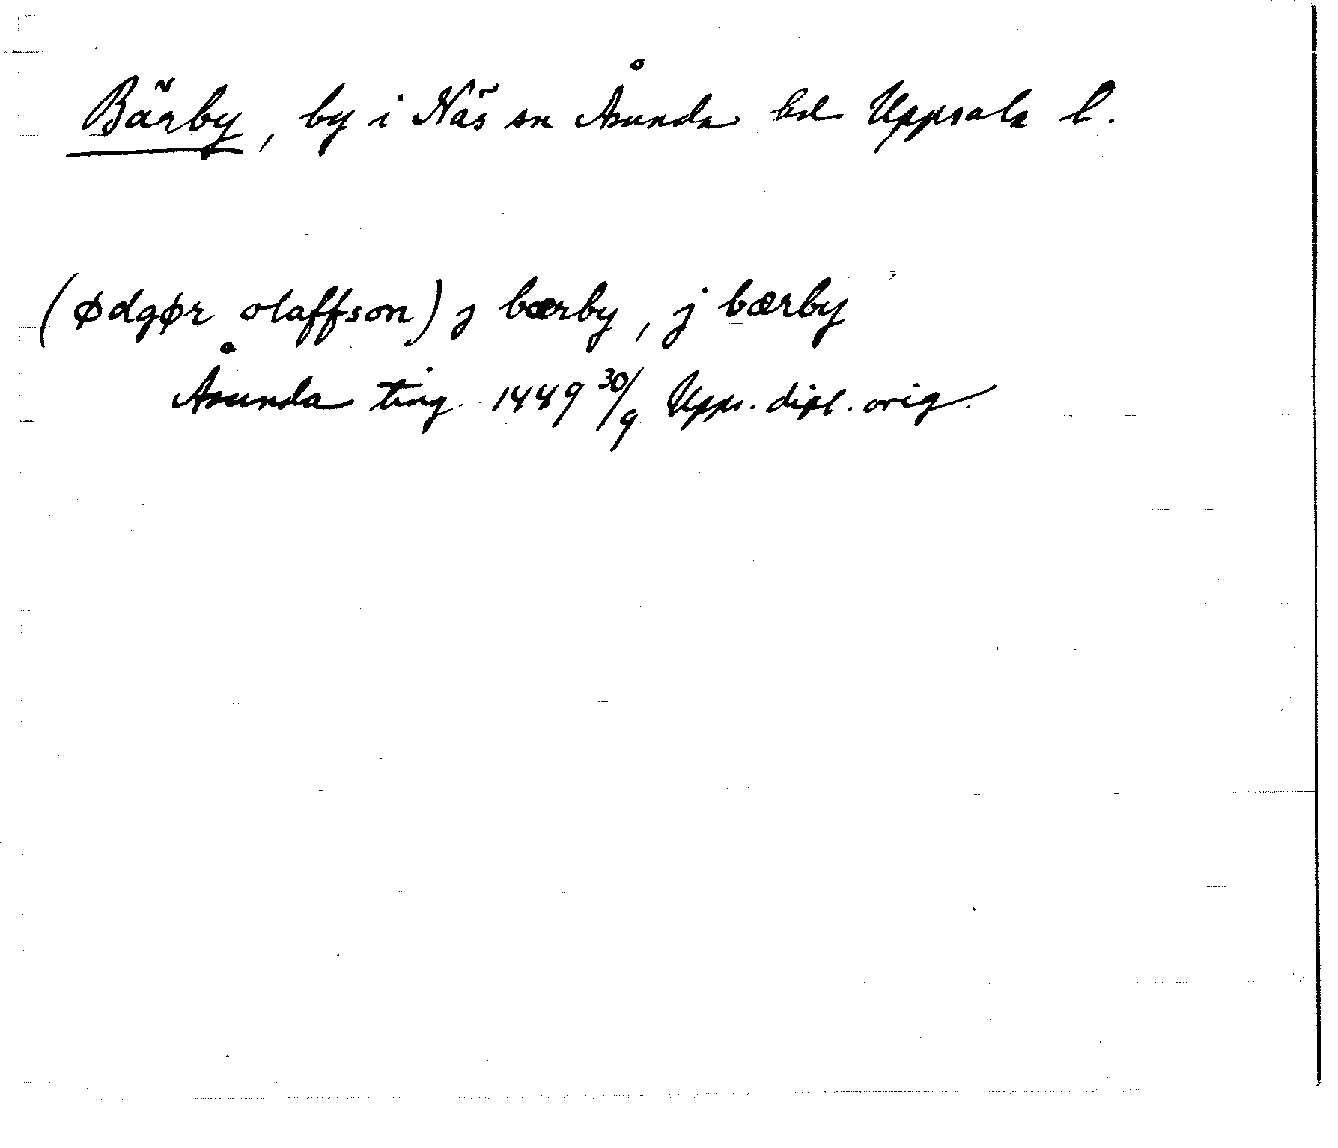 Bärby, by i Näs sn Åsunda hd Uppsala l.
(ødgør olaffson) j bærby, j bærby
Åsunda ting 1449 30/9 Upps. dipl. orig.